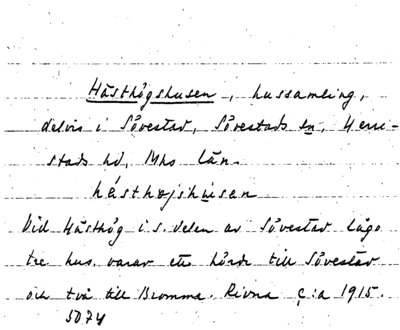 Hästhögshusen, hussamling,
delvis i Sövestad, Sövestads sn, Herre-
stads hd, Mhs län.
hásthøjshùsen
Vid Hästhög i s. delen av Sövestad lågo
tre hus, varav ett hörde till Sövestad
och två till Bromma. Rivna c:a 1915.
5074